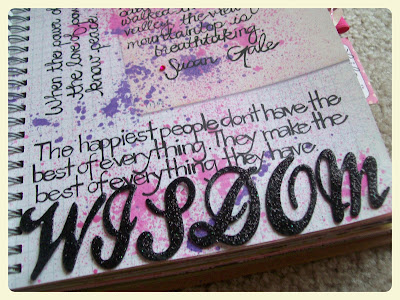 When the power of
the love of pow
know peace.
walked the
valley, the view
mountaintop is
breathtaking.
Susan Gale
The happiest people don't have the
best of everything. They make the
best of everything they have.
WISDOM